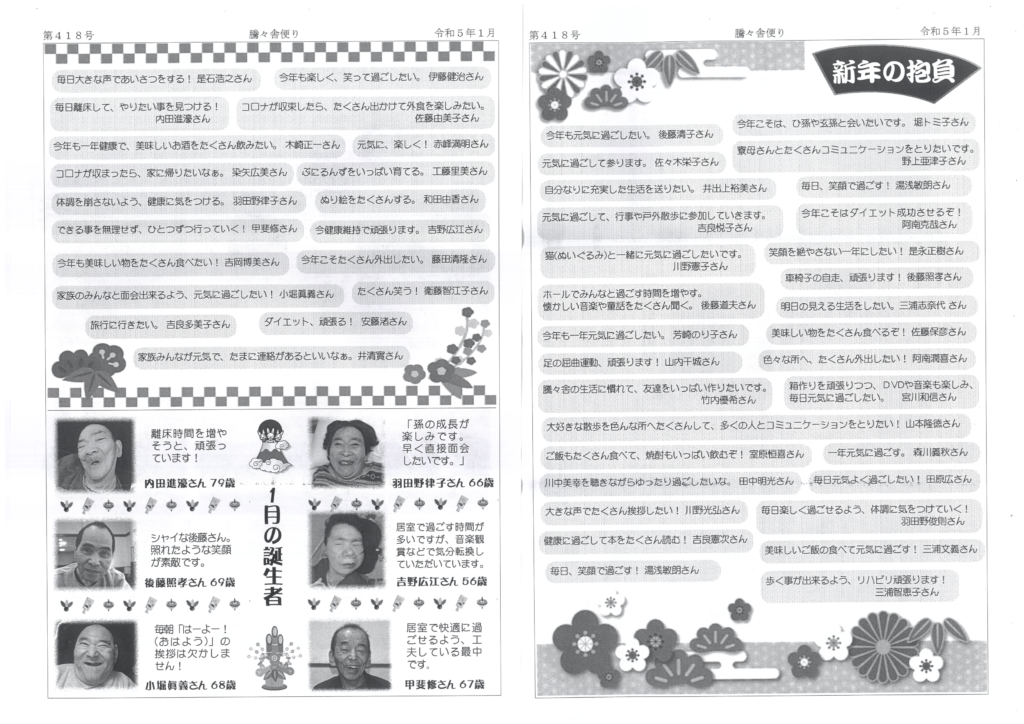 第418号 騰々舎便り 令和5年1月
毎日大きな声であいさつをする! 是石浩之さん
今年も楽しく、笑って過ごしたい。 伊藤健治さん
毎日離床して、やりたい事を見つける!
内田進濠さん
コロナが収束したら、たくさん出かけて外食を楽しみたい。
佐藤由美子さん
今年も一年健康で、美味しいお酒をたくさん飲みたい。 木崎正一さん
元気に、楽しく! 赤峰満明さん
コロナが収まったら、家に帰りたいなぁ。 染矢広美さん
ぷにるんずをいっぱい育てる。 工藤里美さん
体調を崩さないよう、健康に気をつける。 羽田野律子さん
ぬり絵をたくさんする。 和田由香さん
できる事を無理せず、ひとつずつ行っていく! 甲斐修さん
今健康維持で頑張ります。 吉野広江さん
今年も美味しい物をたくさん食べたい! 吉岡博美さん
今年こそたくさん外出したい。 藤田清隆さん
家族のみんなと面会出来るよう、元気に過ごしたい! 小堀眞義さん
たくさん笑う! 衛藤智江子さん
旅行に行きたい。 吉良多美子さん
ダイエット、頑張る! 安藤渚さん
家族みんなが元気で、たまに連絡があるといいなぁ。 井清實さん
離床時間を増や
そうと、頑張っ
ています!
内田進濠さん 79歳
「孫の成長が
楽しみです。
早く直接面会
したいです。」
羽田野律子さん 66歳
1月の誕生者
シャイな後藤さん。
照れたような笑顔
が素敵です。
後藤照孝さん 69歳
居室で過ごす時間が
多いですが、音楽観
賞などで気分転換し
ていただいています。
吉野広江さん 56歳
毎朝「はーよー!
(おはよう)」の
挨拶は欠かしま
せん!
小堀眞義さん 68歳
居室で快適に過
ごせるよう、工
夫している最中
です。
甲斐修さん 67歳
第418号 騰々舎便り 令和5年1月
新年の抱負
今年も元気に過ごしたい。 後藤清子さん
今年こそは、ひ孫や玄孫と会いたいです。 堀トミ子さん
元気に過ごして参ります。 佐々木栄子さん
寮母さんとたくさんコミュニケーションをとりたいです。
野上亜津子さん
自分なりに充実した生活を送りたい。 井出上裕美さん
毎日、笑顔で過ごす! 湯浅敏朗さん
元気に過ごして、行事や戸外散歩に参加していきます。
吉良悦子さん
今年こそはダイエット成功させるぞ!
阿南克哉さん
猫(ぬいぐるみ)と一緒に元気に過ごしたいです。
川野憲子さん
笑顔を絶やさない一年にしたい! 是永正樹さん
車椅子の自走、頑張ります! 後藤照孝さん
ホールでみんなと過ごす時間を増やす。
懐かしい音楽や童話をたくさん聞く。 後藤道夫さん
明日の見える生活をしたい。三浦志奈代 さん
今年も一年元気に過ごしたい。 芳崎のり子さん
美味しい物をたくさん食べるぞ! 佐藤保彦さん
足の屈曲運動、頑張ります! 山内千城さん
色々な所へ、たくさん外出したい! 阿南潤喜さん
騰々舎の生活に慣れて、友達をいっぱい作りたいです。
竹内優希さん
箱作りを頑張りつつ、DVDや音楽も楽しみ、
毎日元気に過ごしたい。 宮川和信さん
大好きな散歩を色んな所へたくさんして、多くの人とコミュニケーションをとりたい! 山本隆徳さん
ご飯もたくさん食べて、焼酎もいっぱい飲むぞ! 室原恒喜さん
一年元気に過ごす。 森川義秋さん
川中美幸を聴きながらゆったり過ごしたいな。 田中明光さん
毎日元気よく過ごしたい! 田原広さん
大きな声でたくさん挨拶したい! 川野光弘さん
毎日楽しく過ごせるよう、体調に気をつけていく!
羽田野俊則さん
健康に過ごして本をたくさん読む! 吉良憲次さん
美味しいご飯の食べて元気に過ごす! 三浦文義さん
毎日、笑顔で過ごす! 湯浅敏朗さん
歩く事が出来るよう、リハビリ頑張ります!
三浦智恵子さん